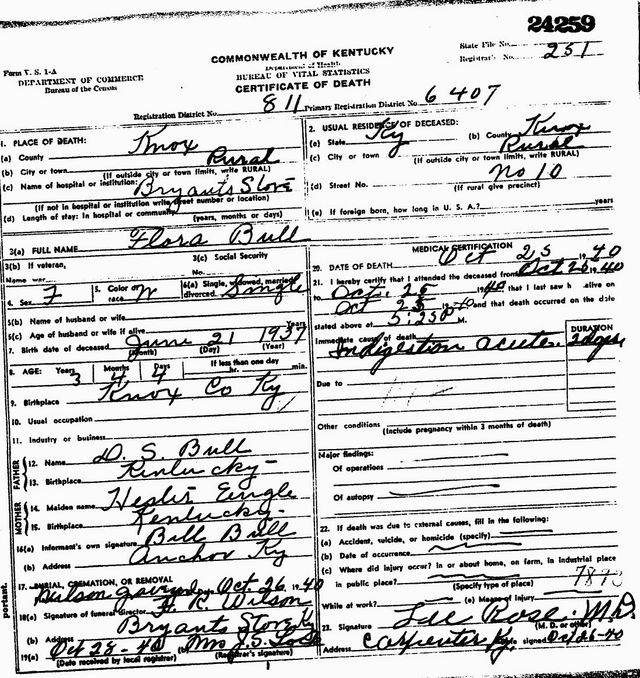 24259
COMMONWEALTH OF KENTUCKY
State File No.
Form V. S. 1-A
Department of Health
Registrar's No. 251
DEPARTMENT OF COMMERCE
BUREAU OF VITAL STATISTICS
Bureau of the Census
CERTIFICATE OF DEATH
Registration District No. 811 Primary Registration District No 6407
1. PLACE OF DEATH:
(a) County Knox
(b) City or town Rural
(If outside city or town limits, write RURAL)
(c) Name of hospital or institution: Bryants Stove
(If not in hospital or institution write street number or location)
(d) Length of stay: In hospital or community
(years, months or days)
2. USUAL RESIDENCE OF DECEASED:
(a) State Ky (b) County Knox
(c) City or town Rural
(If outside city or town limits, write RURAL)
(d) Street No. No 10
(If rural give precinct)
(e) If foreign born, how long in U. S. A.? years
3(a) FULL NAME Flora Bull
3(b) If veteran, 3(c) Social Security
Name war No.
4. Sex F 5. Color or race W 6(a) Single, widowed, married, divorced. Single
6(b) Name of husband or wife
6(c) Age of husband or wife if alive years
7. Birth date of deceased June 21 1937
(Month) (Day) (Year)
8. AGE: Years 3 Months 4 Days 4 If less than one day hr. min.
9. Birthplace Knox Co Ky
10. Usual occupation
11. Industry or business
FATHER
12. Name D. S. Bull
13. Birthplace Kentucky
MOTHER
14. Maiden name Engle
15. Birthplace Kentucky
16(a) Informant's own signature Bill Bull
(b) Address Anchor Ky
17. BURIAL, CREMATION, OR REMOVAL
Oct. 26 1940
18(a) Signature of funeral director H. R. Wilson
(b) Address Bryants Stove Ky
19(a) Oct 28-40 (b) Mrs J. S.
(Date received by local registrar) (Registrar's signature)
portant.
MEDICAL CERTIFICATION
20. DATE OF DEATH Oct 25 1940
21. I hereby certify that I attended the deceased from Oct 25 1940
to Oct. 25 1940 that I last saw h alive on
Oct 25 1940 and that death occurred on the date
stated above at 5:25 P M.
Immediate cause of death DURATION
Indigestion acute. 2 days
Due to
Other conditions
(Include pregnancy within 3 months of death)
Major findings:
Of operations
Of autopsy
22. If death was due to external causes, fill in the following:
(a) Accident, suicide, or homicide (specify)
(b) Date of occurrence
(c) Where did injury occur? in or about home, on farm, in industrial place
in public place?
(Specify type of place)
While at work? (e) Means of injury
23. Signature Lee Rose. M.D.
(M. D. or other)
Address Carpenter Ky. Date signed Oct 26-40